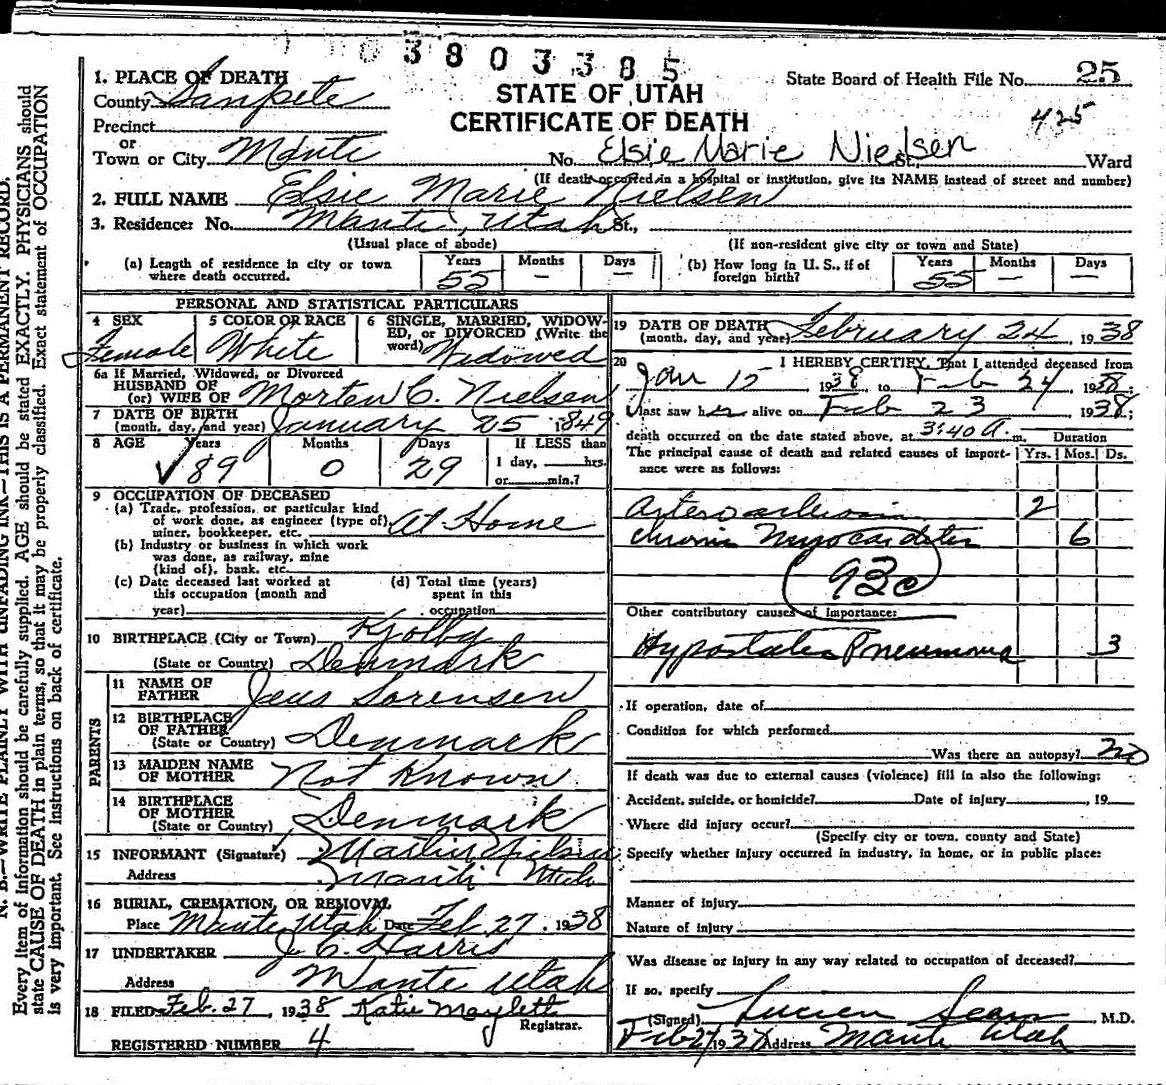 3803385
1. PLACE OF DEATH
County Sanpete
STATE OF UTAH
State Board of Health File No. 25
425
Precinct
CERTIFICATE OF DEATH
or
Town or City Manti No. Elsie Marie Nielsen St. Ward
(If death occurred in a hospital or institution, give its NAME instead of street and number)
2. FULL NAME Elsie Marie Nielsen
3. Residence: No. Manti, Utah St.,
(Usual place of abode) (If non-resident give city or town and State)
(a) Length of residence in city or town where death occurred. Years 55 Months — Days —
(b) How long in U. S., if of foreign birth? Years 55 Months — Days —
PERSONAL AND STATISTICAL PARTICULARS
4 SEX Female
5 COLOR OR RACE White
6 SINGLE, MARRIED, WIDOWED, or DIVORCED (Write the word) Widowed
6a If Married, Widowed, or Divorced
HUSBAND OF
(or) WIFE OF Morten C. Nielsen
7 DATE OF BIRTH
(month, day, and year) January 25 1849
8 AGE Years 89 Months 0 Days 29 If LESS than
1 day, hrs.
or min.?
9 OCCUPATION OF DECEASED
(a) Trade, profession, or particular kind
of work done, as engineer (type of)
miner, bookkeeper, etc. At Home
(b) Industry or business in which work
was done, as railway, mine
(kind of), bank, etc.
(c) Date deceased last worked at
this occupation (month and
year)
(d) Total time (years)
spent in this
occupation
10 BIRTHPLACE (City or Town) Kjolby
(State or Country) Denmark
PARENTS
11 NAME OF
FATHER Jens Sorensen
12 BIRTHPLACE
OF FATHER
(State or Country) Denmark
13 MAIDEN NAME
OF MOTHER Not Known
14 BIRTHPLACE
OF MOTHER
(State or Country) Denmark
15 INFORMANT (Signature) Martin Nielsen
Address Manti Utah
16 BURIAL, CREMATION, OR REMOVAL
Place Manti Utah Date Feb 27, 1938
17 UNDERTAKER J. C. Harris
Address Manti Utah
18 FILED Feb. 27, 1938 Katie Maylett
Registrar.
REGISTERED NUMBER 4
19 DATE OF DEATH
(month, day, and year) February 24, 1938
20 I HEREBY CERTIFY, That I attended deceased from
Jan 15 1938, to Feb 24 1938;
I last saw her alive on Feb 23 1938;
death occurred on the date stated above, at 3:40 A. m. Duration
The principal cause of death and related causes of importance were as follows: Yrs. Mos. Ds.
2
chronic Myocarditis 6
93c
Other contributory causes of importance:
Hypostatic Pneumonia 3
If operation, date of
Condition for which performed
Was there an autopsy? no
If death was due to external causes (violence) fill in also the following:
Accident, suicide, or homicide? Date of injury , 19
Where did injury occur?
(Specify city or town, county and State)
Specify whether injury occurred in industry, in home, or in public place:
Manner of injury
Nature of injury
Was disease or injury in any way related to occupation of deceased?
If so, specify
(Signed) Lucien Sears M.D.
Feb 27 1937 Address Manti Utah
N. B.—WRITE PLAINLY WITH UNFADING INK—THIS IS A PERMANENT RECORD.
Every item of information should be carefully supplied. AGE should be stated EXACTLY. PHYSICIANS should
state CAUSE OF DEATH in plain terms, so that it may be properly classified. Exact statement of OCCUPATION
is very important. See instructions on back of certificate.